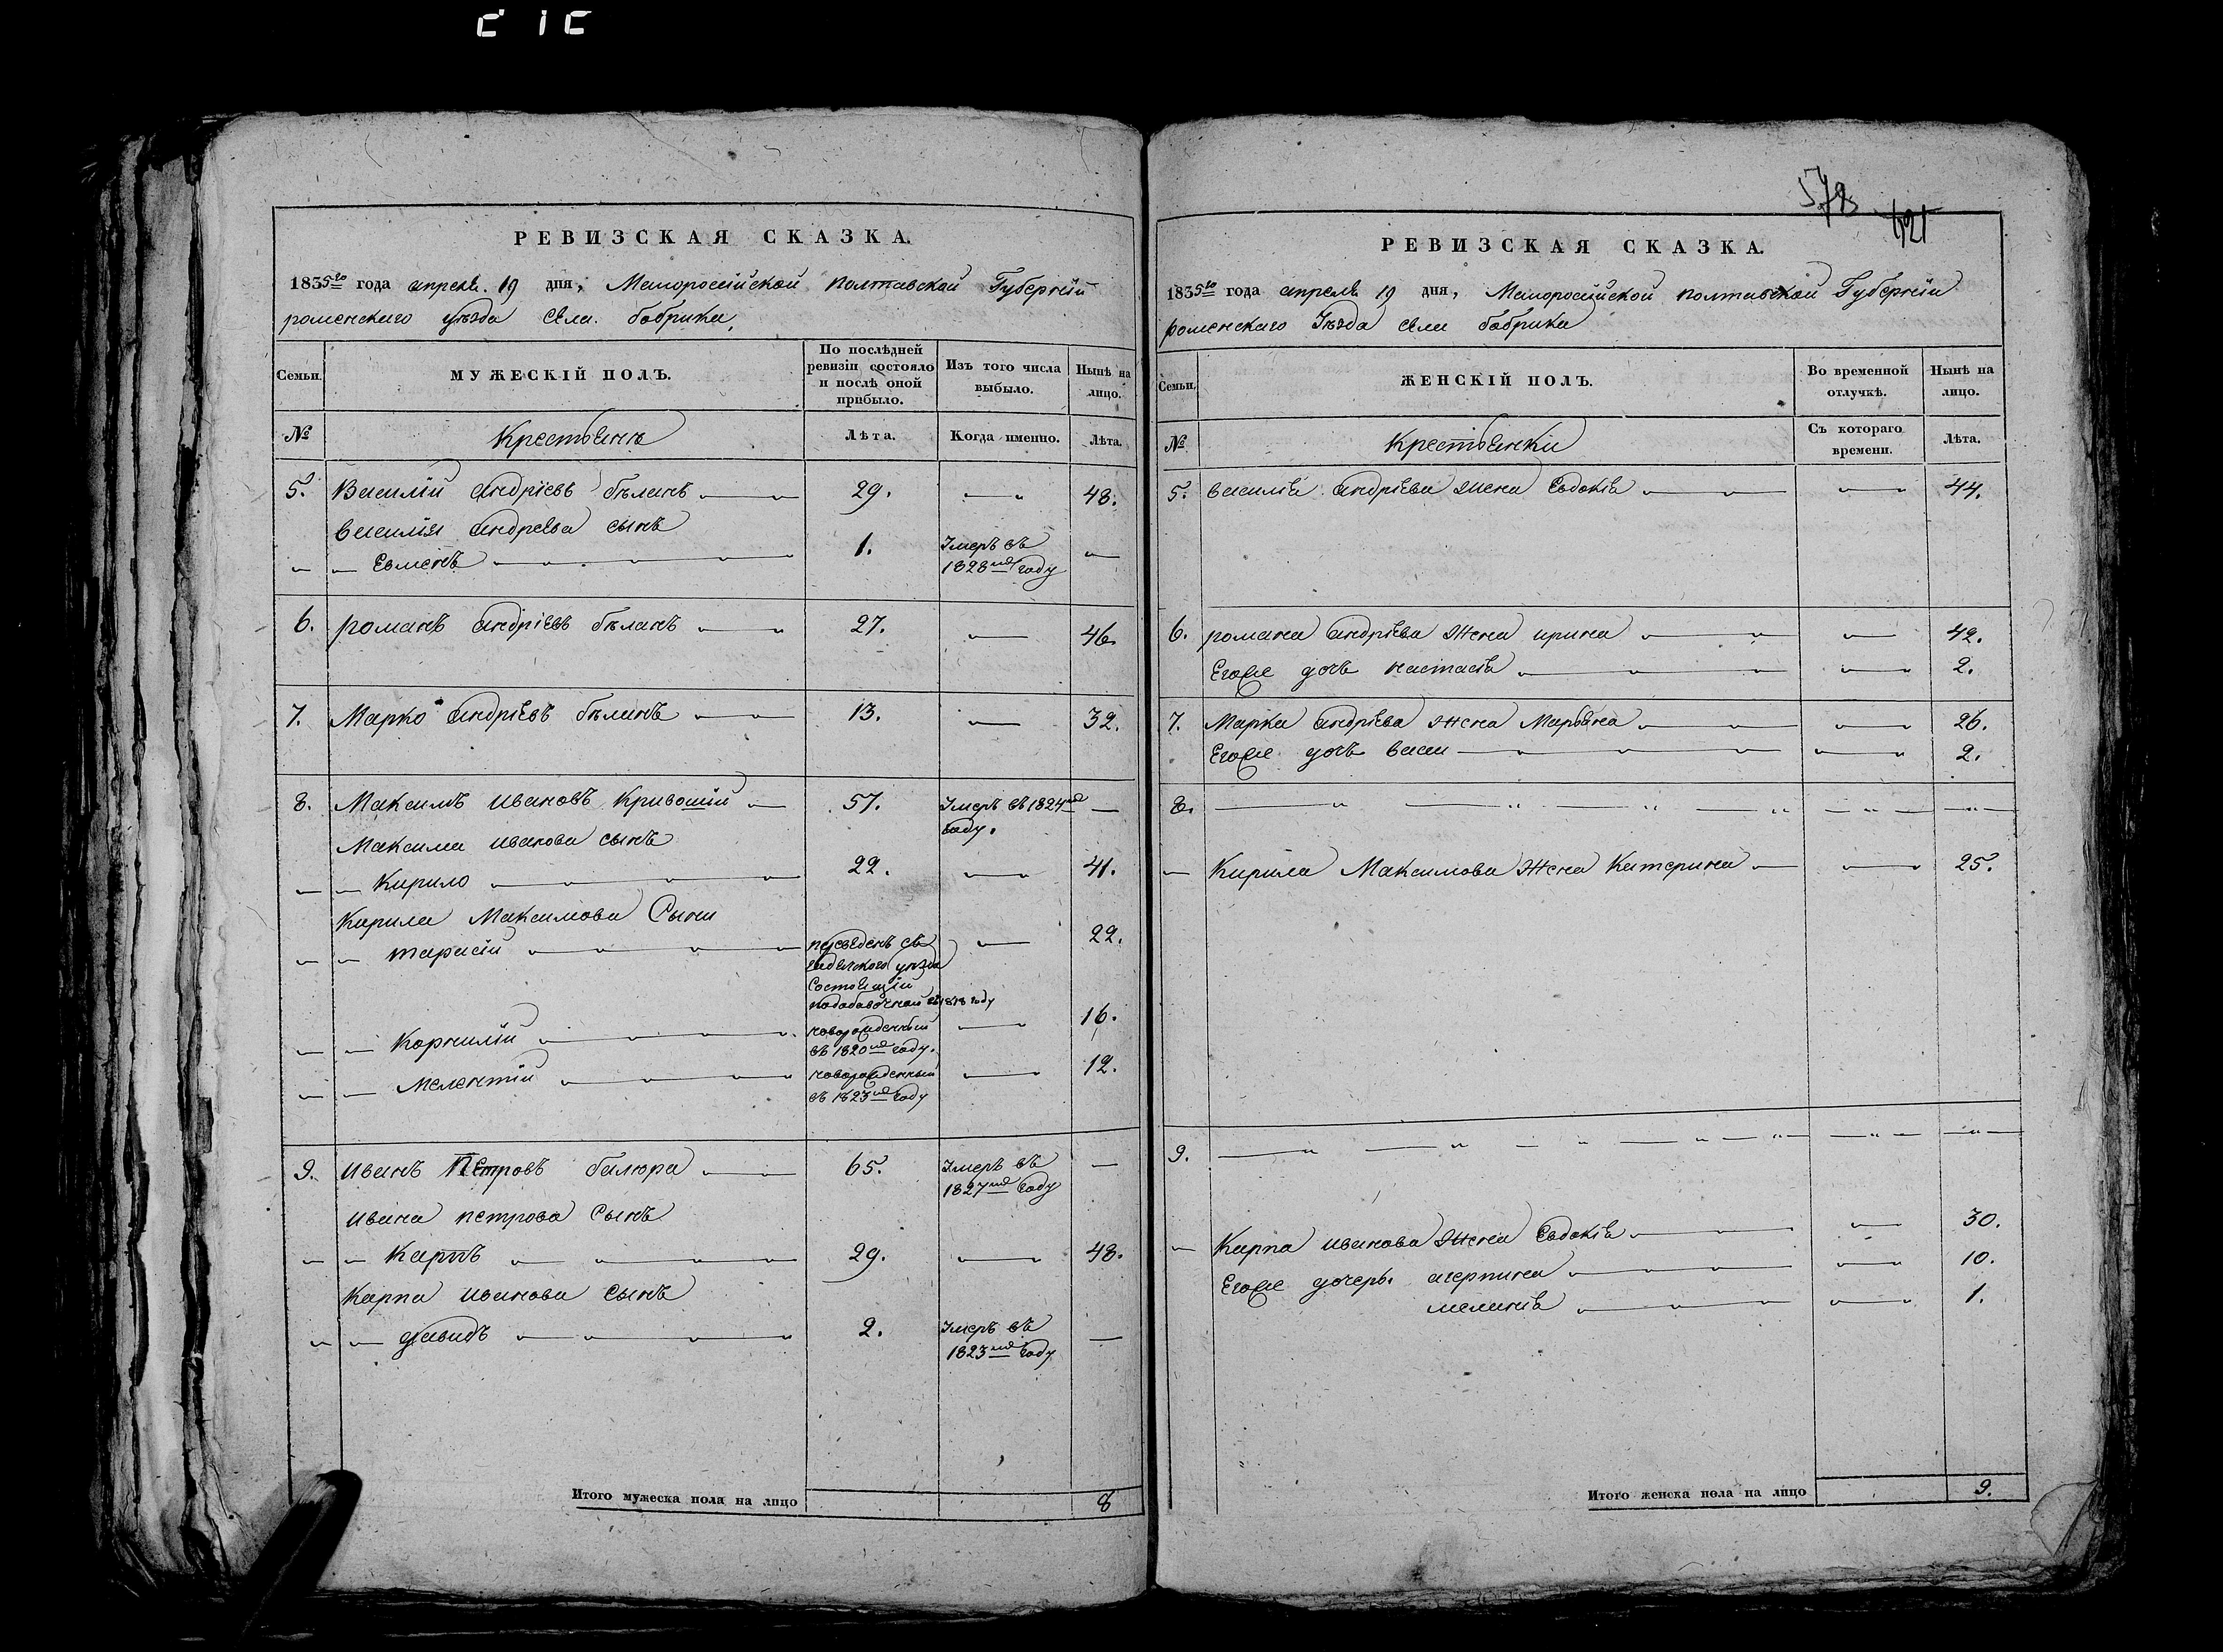 РЕВИЗСКАЯ СКАЗКА.
1835го года апреля 19 дня, Малоросійской полтавской Губерніи
роменского уѣзда села бобрика,
Семьи.
МУЖЕСКІЙ ПОЛЪ.
По послѣдней ревизіи состояло и послѣ оной прибыло.
Изъ того числа выбыло.
Нынѣ на лицо.
№
Крестьяне
Лѣта.
Когда именно.
Лѣта.
5. Василій андріевъ бѣланъ 29. 48.
василія андреева сынъ
Евменъ 1. Умеръ въ 1828мъ году
6. романъ андріевъ бѣланъ 27. 46.
7. Марко андріевъ бѣланъ 13. 32.
8. Максимъ ивановъ Кривошій 57. Умеръ въ 1824мъ году.
Максима иванова сынъ
Кирило 22. 41.
Кирила Максимова Сыны
тарасій переведенъ съ гадячского уѣзда Состоящій 22.
Корнилій новорожденный въ 1820мъ году. 16.
мелентій новорожденный въ 1823мъ году 12.
9. иванъ Петровъ билюра 65. Умеръ въ 1827мъ году
ивана петрова Сынъ
Карпъ 29. 48.
Карпа иванова Сынъ
давидъ 2. Умеръ въ 1823мъ году
Итого мужеска пола на лицо 8
578
РЕВИЗСКАЯ СКАЗКА.
1835го года апреля 19 дня, Малоросійской полтавской Губерніи
роменского Уѣзда села бобрика
Семьи.
ЖЕНСКІЙ ПОЛЪ.
Во временной отлучкѣ.
Нынѣ на лицо.
№
Крестьянки
Съ котораго времени.
Лѣта.
5. василія андріева жена Евдокія 44.
6. романа андріева жена ирина 42.
Егоже дочь настасія 2.
7. Марка андріева жена Марьяна 26.
Егоже дочь васа 2.
8.
Кирила Максимова жена Катерина 25.
9.
Карпа иванова жена Евдокія 30.
Егоже дочеры агерпина 10.
меланія 1.
Итого женска пола на лицо 9.